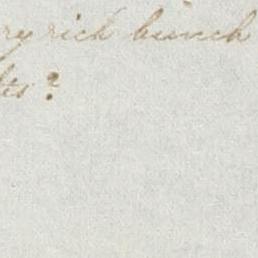 ry rich bunch
ts?